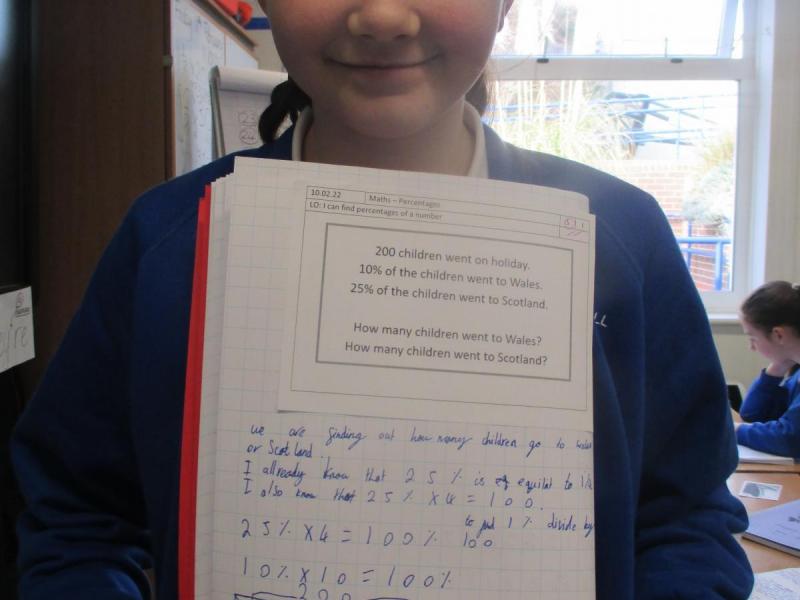 10.02.22 Maths – Percentages
LO: I can find percentages of a number
200 children went on holiday.
10% of the children went to Wales.
25% of the children went to Scotland.
How many children went to Wales?
How many children went to Scotland?
we are finding out how many children go to wales
or Scotland.
I allready know that 25% is equilat to 1/4
I also know that 25% x4 = 100.
to find 1% divide by
100
25% x4 = 100%
10% x 10 = 100%
200